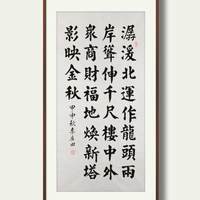 潺湲北運作龍頭兩
岸聳伸千尺樓中外
衆商財福地煥新塔
影映金秋 甲申秋